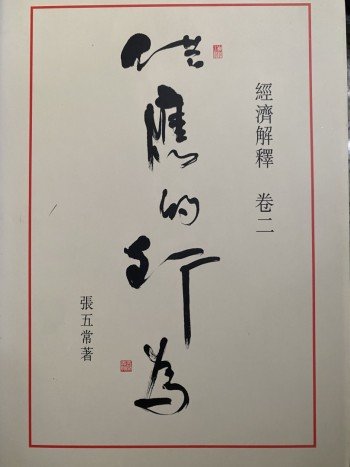 經濟解釋 卷二
供應的行為
張五常著